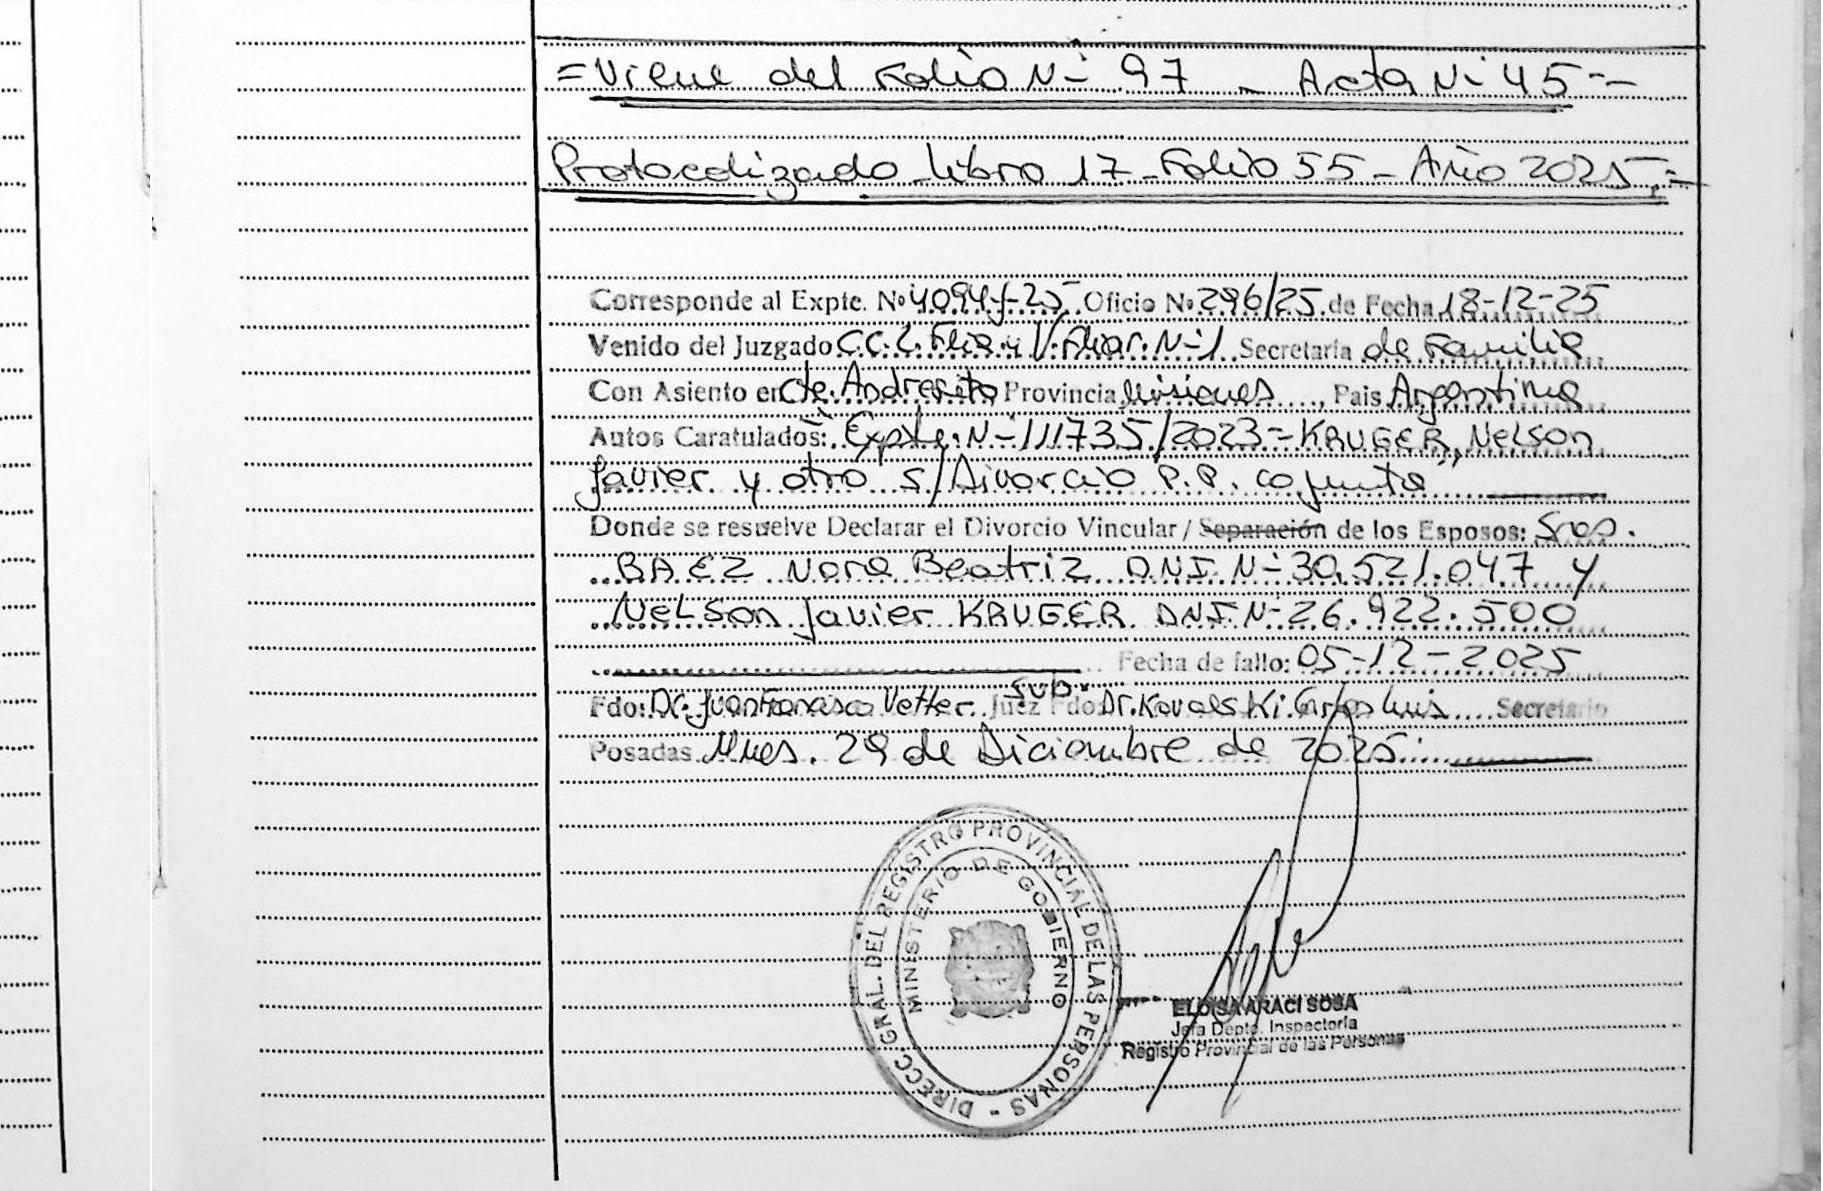 =Viene del Folio Nº 97 - Acta Nº 45--
Protocolizado-libro 17-Folio 55-Año 2025.-
Corresponde al Expte. Nº 4094-f-25 Oficio Nº 296/25 de Fecha 18-12-25
Venido del Juzgado C.C.L. Flia. y V. Fliar. Nº 1 Secretaría de Familia
Con Asiento en Cte. Andresito Provincia Misiones, Pais Argentina
Autos Caratulados: "Expte. Nº 111735/2023-KRUGER, Nelson
Javier y otro s/Divorcio P.P. cojunta"
Donde se resuelve Declarar el Divorcio Vincular / Separación de los Esposos: Sres.
BAEZ Nora Beatriz DNI Nº 30.521.047 y
NELSON Javier KRUGER DNI Nº 26.922.500
Fecha de fallo: 05-12-2025
Fdo: Dr. Juan Francisco Vetter Juez Sub. Fdo: Dr. Kovalski Carlos Luis Secretario
Posadas Mnes. 29 de Diciembre de 2025
DIRECC. GRAL. DEL REGISTRO PROVINCIAL DE LAS PERSONAS -
MINISTERIO DE GOBIERNO
ELOISA ARACI SOSA
Jefa Depto. Inspectoría
Registro Provincial de las Personas